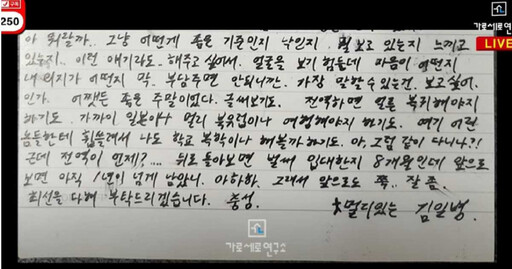 구독
250
가로세로연구소
LIVE
아 뭐랄까.. 그냥 어떤게 좋은 기준인지 낙인지. 뭘 보고 있는지 느끼고
있는지.. 이런 얘기라도 해주고 싶어서. 얼굴을 보기 힘들데 마음이 어떤지
내 의지가 어떤지 막. 부담주면 안되니깐. 가장 말할 수 있는건. 보고싶어.
인가. 어쨌든 좋은 주말이었다. 글써보기도. 전역하면 얼른 복귀해야지
하기도. 가까이 일본이나 멀리 북유럽이나 여행해야지 하기도. 여기 어린
놈들한테 휩쓸려서 나도 학교 복학이나 해볼까하기도. 아, 그럼 같이 다니나?!
근데 전역이 언제?.... 뒤로 돌아보면 벌써 입대한지 8개월인데 앞으로
보면 아직 1년이 넘게 남았니. 아하하. 그래서 앞으로도 쭉.. 잘 좀.
최선을 다해 부탁드리겠습니다. 충성.
멀리있는 김일병
가로세로연구소